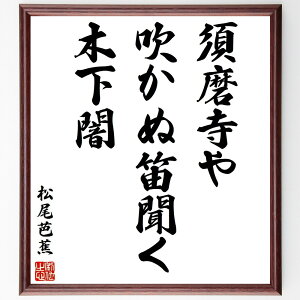 須磨寺や
吹かぬ笛聞く
木下闇
松尾芭蕉